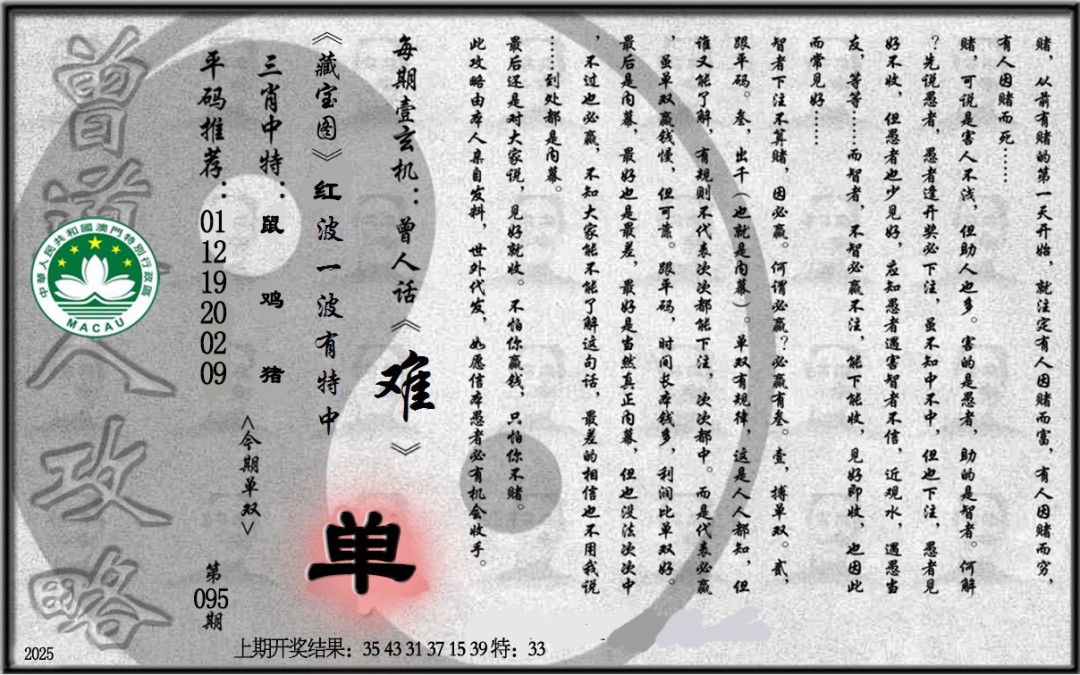 赌，从前有赌的第一天开始，就注定有人因赌而富，有人因赌而穷，
有人因赌而死……
赌，可说是害人不浅，但助人也多。害的是愚者，助的是智者。何解
？先说愚者，愚者逢开奖必下注，虽不知中不中，但也下注，愚者见
好不收，但愚者也少见好，应知愚者遇害智者不信，近观水，遇愚当
友，等等……而智者，不智必赢不注，能下能收，见好即收，也因此
而常见好……
智者下注不算赌，因必赢。何谓必赢？必赢有叁。壹，搏单双。贰，
跟平码。叁，出千（也就是内幕）。单双有规律，这是人人都知，但
谁又能了解，有规则不代表次次都能下注，次次都中。而是代表必赢
，虽单双赢钱慢，但可靠。跟平码，时间长本钱多，利润比单双好。
最后是内幕，最好也是最差，最好是当然真正内幕，但也没法次次中
，不过也必赢，不知大家能不能了解这句话，最差的相信也不用我说
……到处都是内幕。
最后还是对大家说，见好就收。不怕你赢钱，只怕你不赌。
此攻略由本人亲自发料，世外代发，如愿信本愚者必有机会收手。
每期壹玄机：曾人话《难》
《藏宝图》红波一波有特中
单
三肖中特：鼠 鸡 猪
<今期单双>
平码推荐：01 12 19 20 02 09
第095期
曾道人攻略
中華人民共和國澳門特別行政區
MACAU
2025
上期开奖结果：35 43 31 37 15 39 特：33